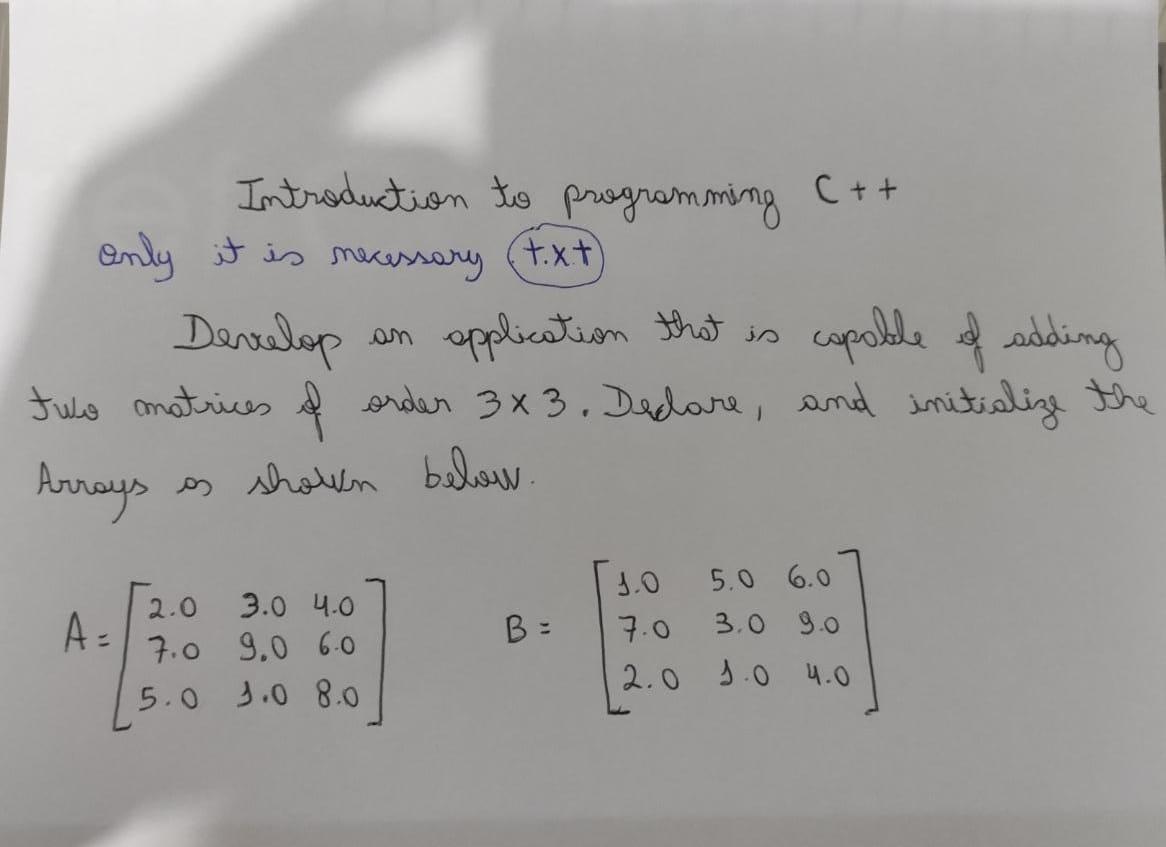 Introduction to programming C++
only it is necessary (t.xt)
Develop an application that is capable of adding
two matrices of order 3x3. Declare, and initialize the
Arrays as shown below.
A = [2.0 3.0 4.0 B = [1.0 5.0 6.0
7.0 9.0 6.0 7.0 3.0 9.0
5.0 1.0 8.0] 2.0 1.0 4.0]